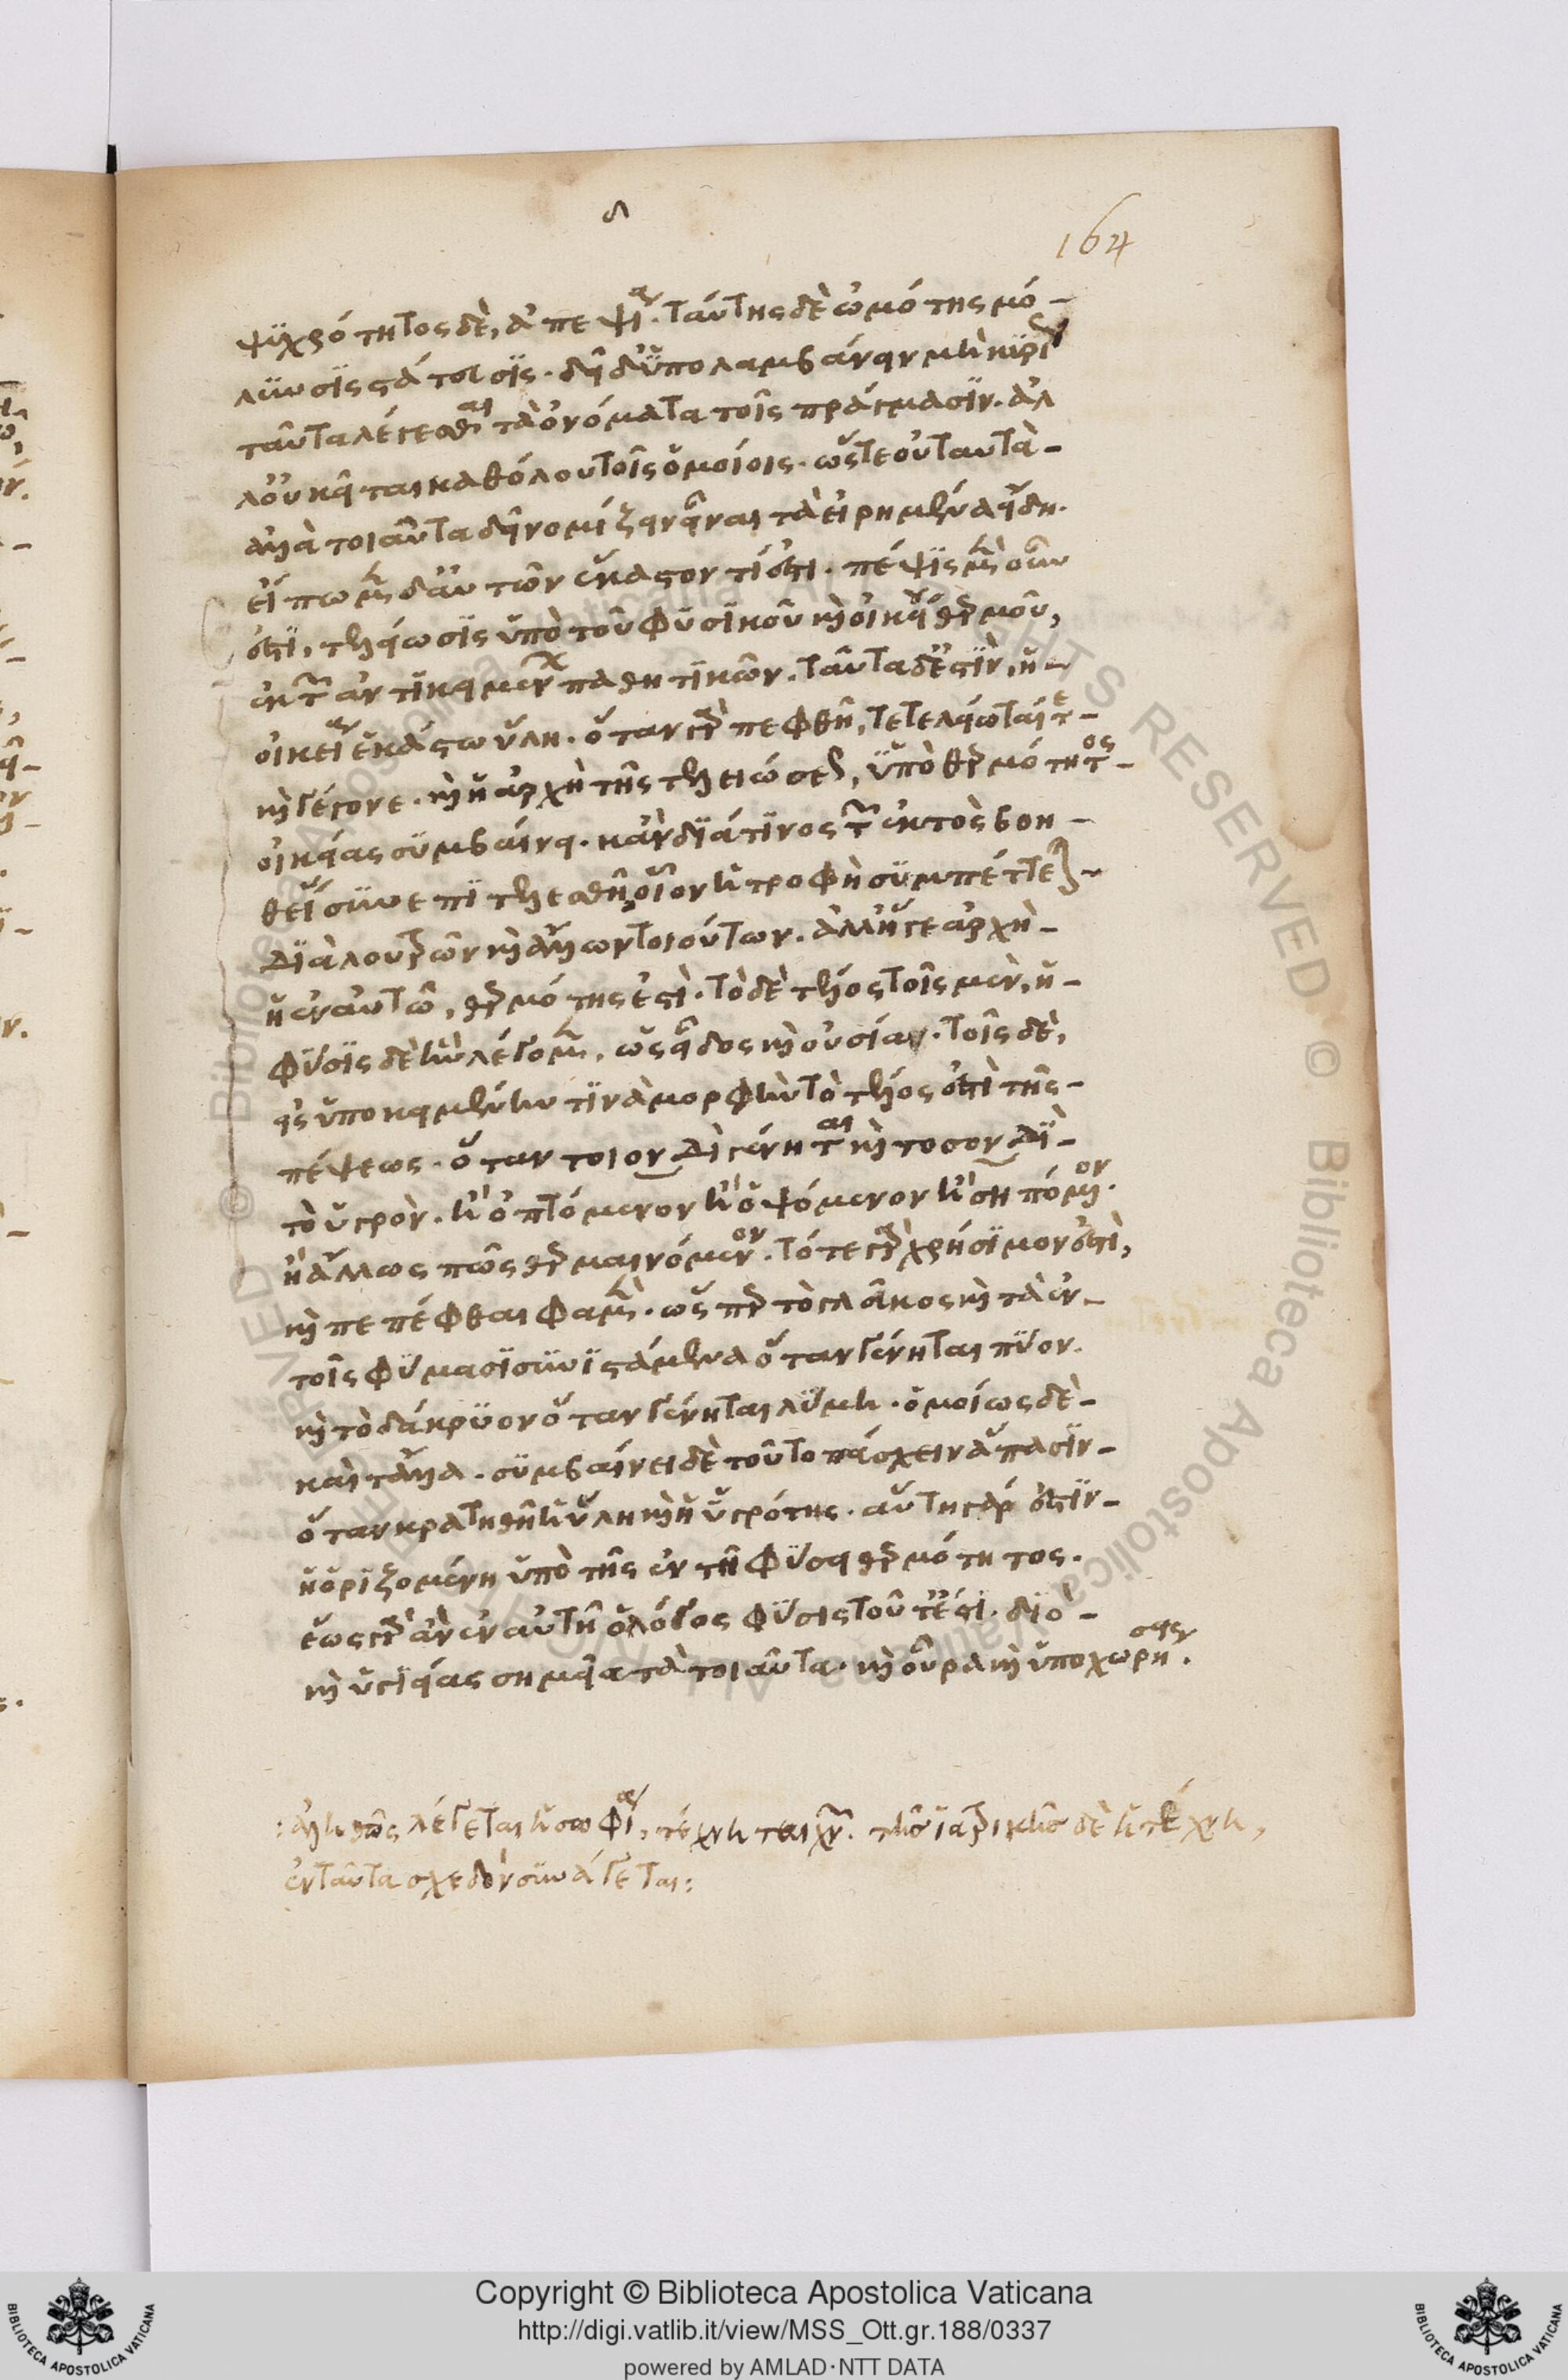 δ
164
ψυχρότητος δὲ, ἀπεψία. ταύτης δὲ ὠμότης μό-
λυνσις στάτευσις. δεῖ δ' ὑπολαμβάνειν μὴ κυρίως
ταῦτα λέγεσθαι τὰ ὀνόματα τοῖς πράγμασιν. ἀλ
λ' οὐ κεῖται καθόλου τοῖς ὁμοίοις. ὥστε οὐ ταυτὰ-
ἀλλὰ τοιαῦτα δεῖ νομίζειν εἶναι τὰ εἰρημένα εἴδη.
εἴπωμεν δ' αὐτῶν ἕκαστον τί ἐστι. πέψις μὲν οὖν
ἐστι, τελείωσις ὑπὸ τοῦ φυσικοῦ καὶ οἰκείου θερμοῦ,
ἐκ τῶν ἀντικειμένων παθητικῶν. ταῦτα δ' ἐστὶν, ἡ-
οἰκεία ἑκάστω ὕλη. ὅταν γὰρ πεφθῆ, τετελείωταί τε-
καὶ γέγονε. καὶ ἡ ἀρχὴ τῆς τελειώσεως, ὑπὸ θερμότητος-
οἰκείας συμβαίνει. κἂν διά τινος τῶν ἐκτὸς βοη-
θείας συνεπιτελεσθῆ, οἷον ἡ τροφὴ συμπέττεται-
διὰ λουτρῶν καὶ ἄλλων τοιούτων. ἀλλ' ἥ γε ἀρχὴ-
ἡ ἐν αὐτῶ, θερμότης ἐστί. τὸ δὲ τέλος τοῖς μὲν, ἡ-
φύσις δὲ ἣν λέγομεν, ὡς εἶδος καὶ οὐσίαν. τοῖς δὲ,
εἰς ὑποκειμένην τινὰ μορφὴν τὸ τέλος ἐστὶ τῆς-
πέψεως. ὅταν τοιονδὶ γένηται καὶ τοσονδὶ-
τὸ ὑγρὸν. ἢ ὀπτόμενον ἢ ἑψόμενον ἢ σηπόμενον.
ἢ ἄλλως πῶς θερμαινόμενον. τότε γὰρ χρήσιμον ἐστὶ,
καὶ πεπέφθαι φαμὲν. ὥσπερ τὸ γλεῦκος καὶ τὰ ἐν-
τοῖς φύμασι συνιστάμενα ὅταν γένηται πύον.
καὶ τὸ δάκρυον ὅταν γένηται λύμη. ὁμοίως δὲ-
καὶ τἄλλα. συμβαίνει δὲ τοῦτο πάσχειν ἅπασιν-
ὅταν κρατηθῆ ἡ ὕλη καὶ ἡ ὑγρότης. αὕτη γάρ ἐστιν-
ἡ ὁριζομένη ὑπὸ τῆς ἐν τῆ φύσει θερμότητος.
ἕως γὰρ ἂν ἐν αὐτῆ ὁ λόγος φύσις τοῦτ' ἐστί. διὸ-
καὶ ὑγιείας σημεῖα τὰ τοιαῦτα. καὶ οὖρα καὶ ὑποχωρήσεις.
λέγεται ἡ σοφία, τέχνη τεχνῶν. ἰατρικὴν δὲ ἡ τέχνη,
ἐνταῦθα σχεδὸν συνάγεται:
Copyright © Biblioteca Apostolica Vaticana
http://digi.vatlib.it/view/MSS_Ott.gr.188/0337
powered by AMLAD·NTT DATA